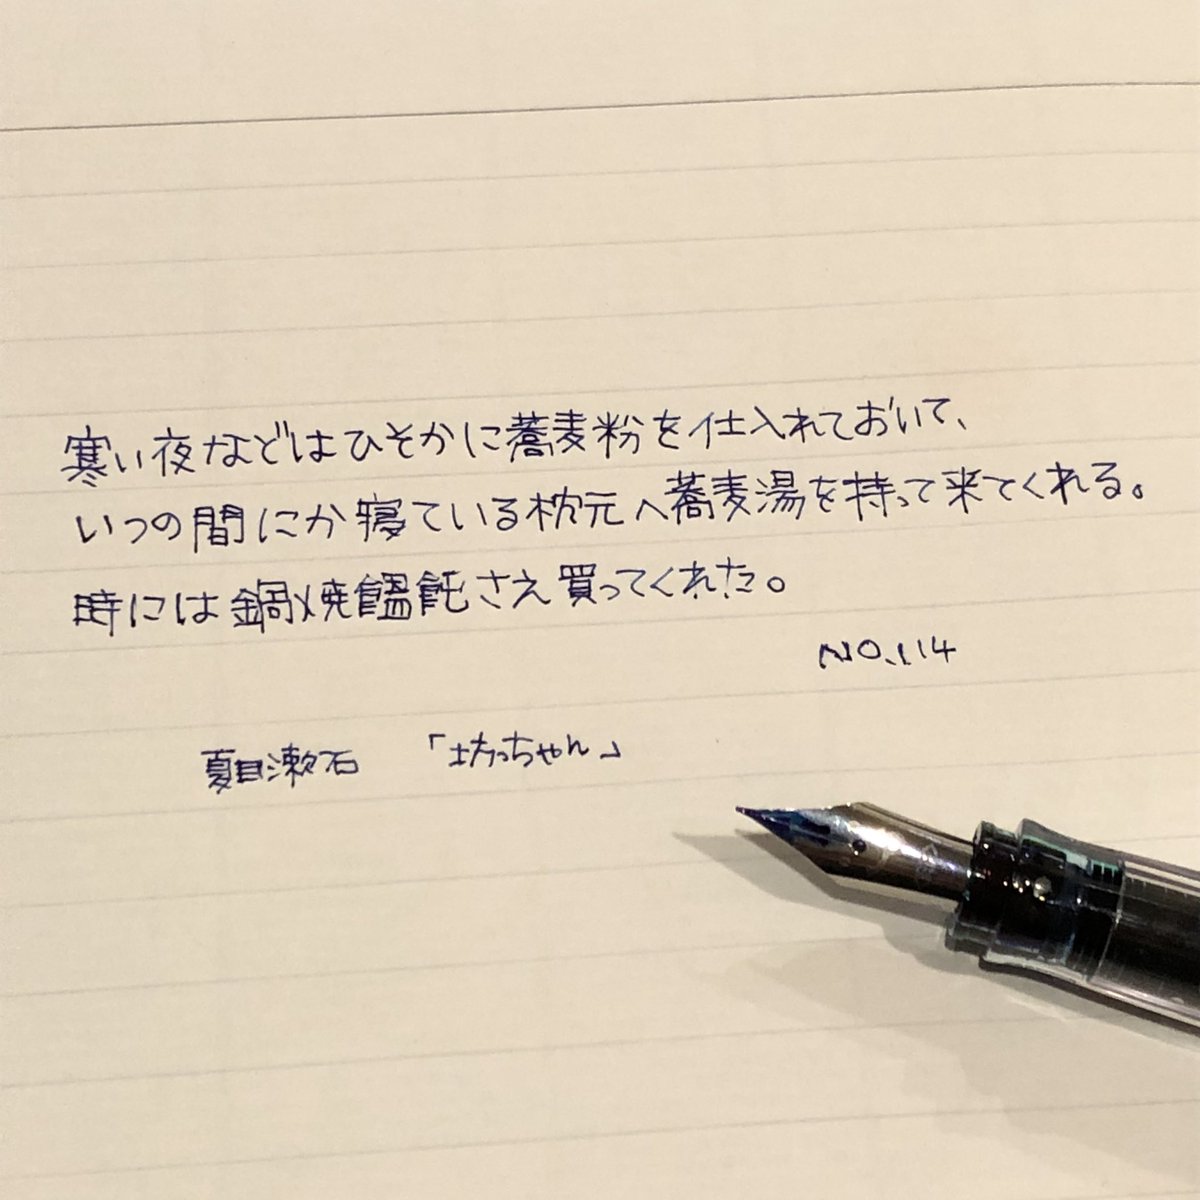 寒い夜などはひそかに蕎麦粉を仕入れておいて、
いつの間にか寝ている枕元へ蕎麦湯を持って来てくれる。
時には鍋焼饂飩さえ買ってくれた。
NO.114
夏目漱石 「坊っちゃん」